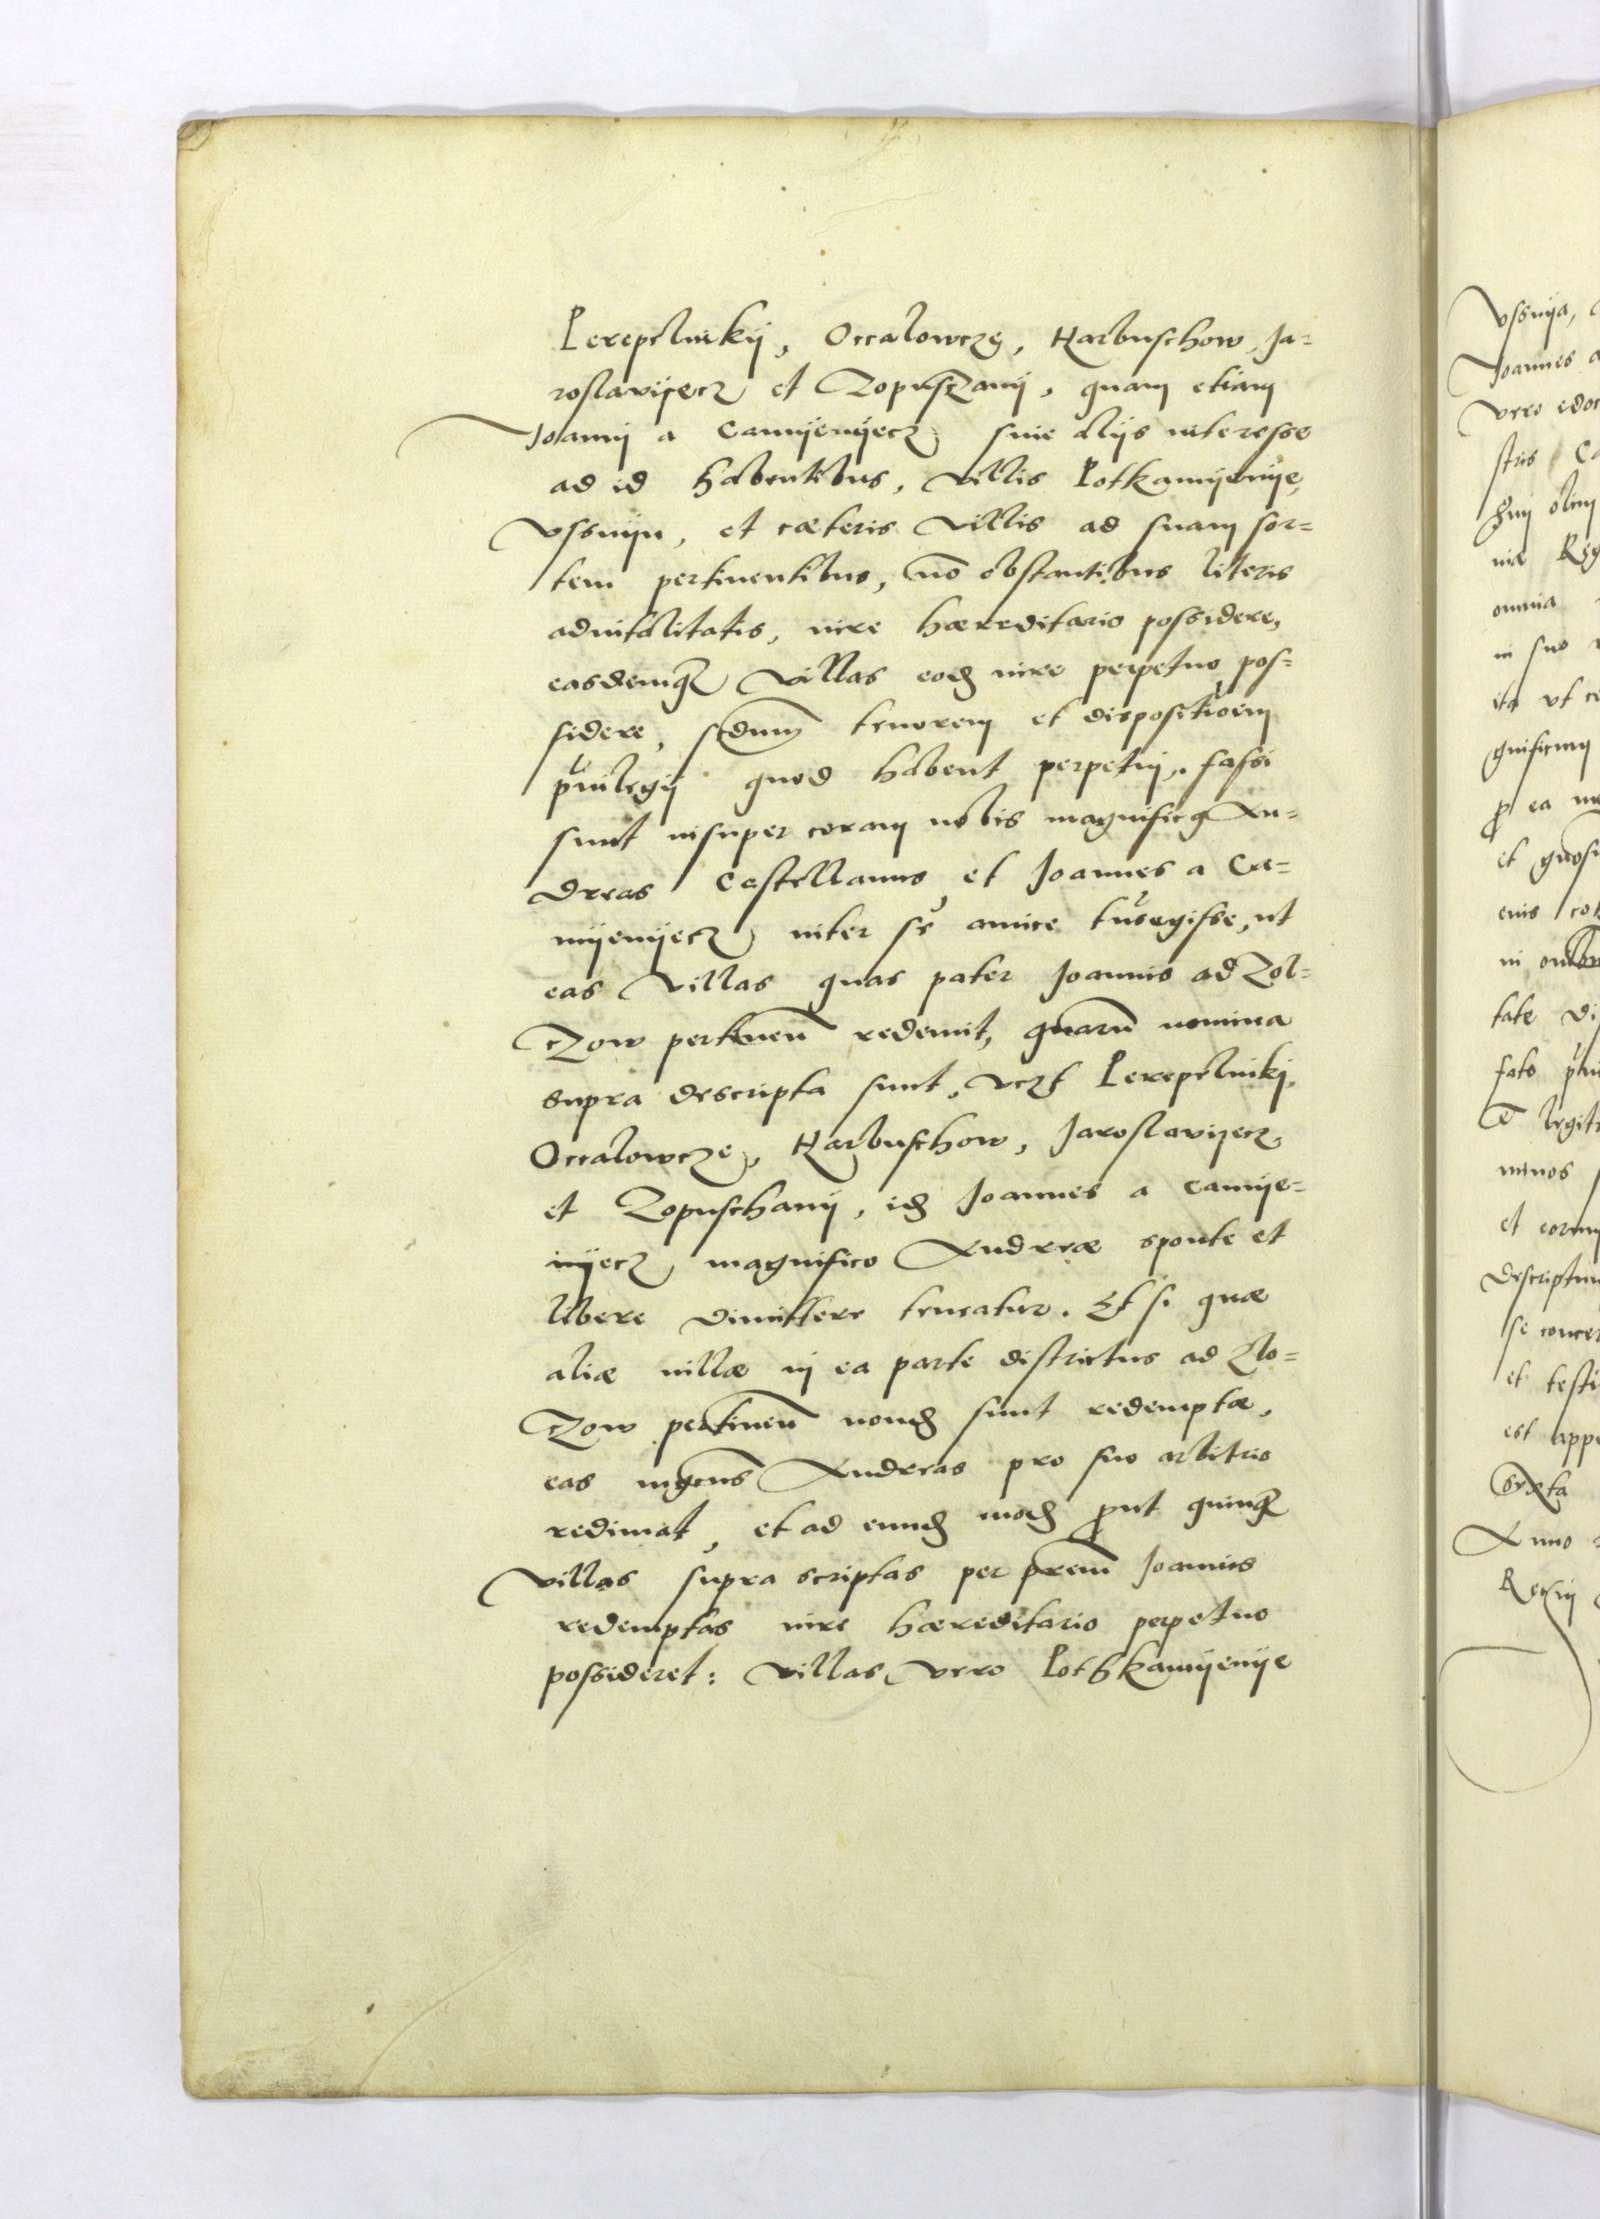 Perepelnikij, Occalowczę, Harbuschow, Ja-
roslavijecz et Zopusczanij, quam etiam
Joannij a Camijenijecz siue alijs interesse
ad id habentibus, villis Potkamijenije,
Vssnijn, et cæteris villis ad suam sor-
tem pertinentibus, nō obstantibus literis
aduitalitatis, iure hæreditario possidere,
easdemq3 villas eod iure perpetuo pos-
sidere, scdum tenorem et dispositioem
priuilegij quod habent perpetuj. fassi
sunt insuper coram nobis magnificq An-
dreas Castellanus et Joannes a Ca-
mijenijecz inter se amice tnsegisse, ut
eas villas quas pater Joannis ad Zol-
czow pertineñ redemit, quarū nomina
supra descripta sunt, vczt Perepelnikj,
Occalowcze, Harbuschow, Jaroslavijecz,
et Zopuschanij, id Joannes a Camije-
nijecz magnifico Andreæ sponte et
libere dimittere teneatur. Et si quæ
aliæ uillæ in ea parte districtus ad Zlo-
czow pertineñ nond sunt redemptæ,
eas mgcus Andreas pro suo arbitrio
redimat, et ad eund mod put quinq3
villas supra scriptas per prem Joannis
redemptas iure hæreditario perpetuo
possideret: villas vero Pothkamijenije
Vssnija,
Joannes a
vero edoc
stris Ca
olim
niæ Reg
omnia
in suo
ita vt ce
gnificum
p ea
et
enis
in
tate di
fato
legiti
minos
et eorum
descriptum
se concer
et testi
est appe
sexta
Anno
Regnj